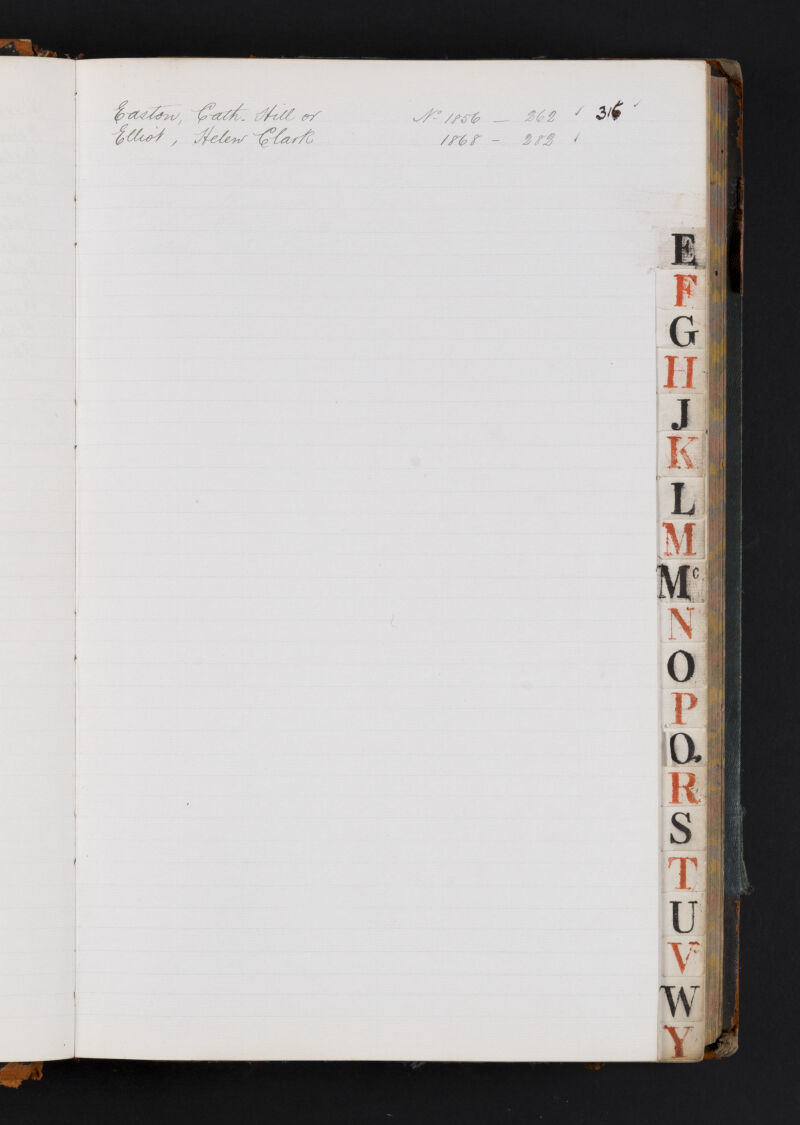 Easton, Cath. Hill or No 1856 — 262 316
Elliot, Helen Clark 1868 - 282
E
F
G
H
J
K
L
M
Mc
N
O
P
Q
R
S
T
U
V
W
Y